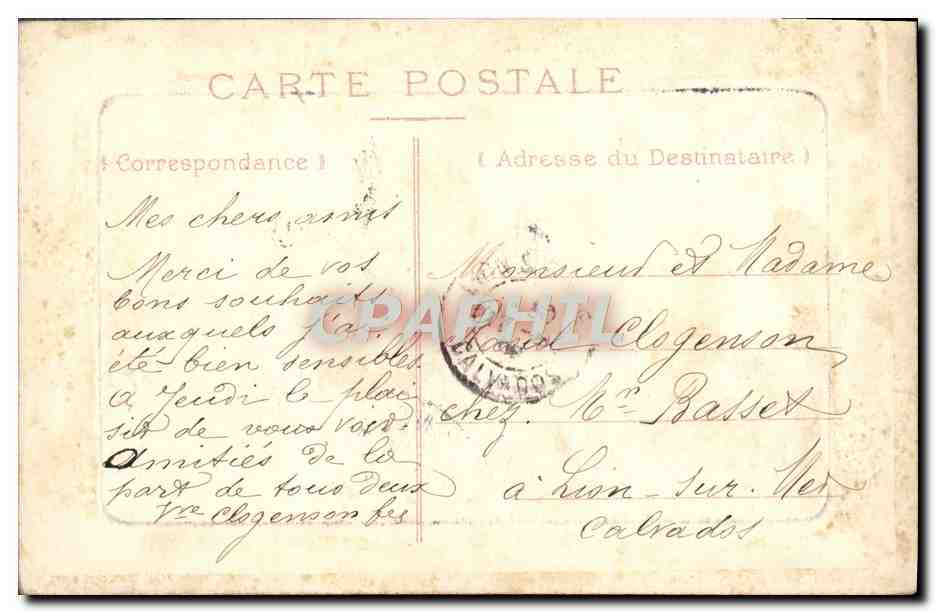 CARTE POSTALE
( Correspondance )
Mes chers amis
Merci de vos
bons souhaits
auxquels j'ai
été bien sensibles.
A Jeudi le plai
sir de vous voir.
Amitiés de la
part de tous deux
Vve Clogenson
( Adresse du Destinataire )
Monsieur et Madame
Clogenson
chez. Mr Basset
à Lion-sur-Mer
Calvados
CALVADOS
CPAPHIL